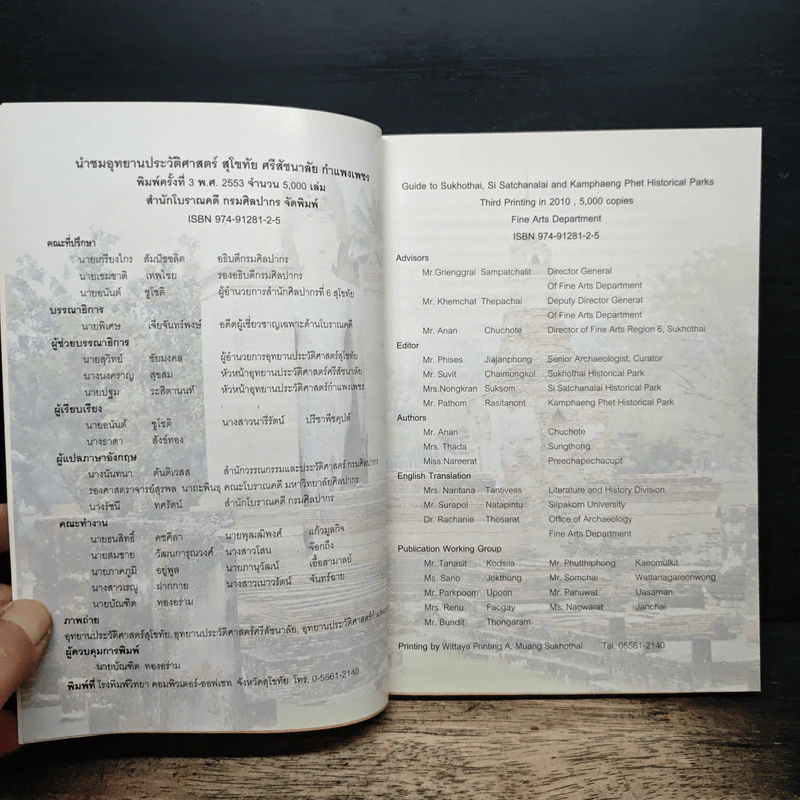 นำชมอุทยานประวัติศาสตร์ สุโขทัย ศรีสัชนาลัย กำแพงเพชร
พิมพ์ครั้งที่ 3 พ.ศ. 2553 จำนวน 5,000 เล่ม
สำนักโบราณคดี กรมศิลปากร จัดพิมพ์
ISBN 974-91281-2-5
คณะที่ปรึกษา
นายเกรียงไกร สัมปัชชลิต อธิบดีกรมศิลปากร
นายเขมชาติ เทพไชย รองอธิบดีกรมศิลปากร
นายอนันต์ ชูโชติ ผู้อำนวยการสำนักศิลปากรที่ 6 สุโขทัย
บรรณาธิการ
นายพิเศษ เจียจันทร์พงษ์ อดีตผู้เชี่ยวชาญเฉพาะด้านโบราณคดี
ผู้ช่วยบรรณาธิการ
นายสุวิทย์ ชัยมงคล ผู้อำนวยการอุทยานประวัติศาสตร์สุโขทัย
นางนงคราญ สุขสม หัวหน้าอุทยานประวัติศาสตร์ศรีสัชนาลัย
นายปฐม ระสิตานนท์ หัวหน้าอุทยานประวัติศาสตร์กำแพงเพชร
ผู้เรียบเรียง
นายอนันต์ ชูโชติ นางสาวนารีรัตน์ ปรีชาพีชคุปต์
นางธาดา สังข์ทอง
ผู้แปลภาษาอังกฤษ
นางนันทนา ตันติเวสส สำนักวรรณกรรมและประวัติศาสตร์ กรมศิลปากร
รองศาสตราจารย์สุรพล นาถะพินธุ คณะโบราณคดี มหาวิทยาลัยศิลปากร
นางรัชนี ทศรัตน์ สำนักโบราณคดี กรมศิลปากร
คณะทำงาน
นายธนสิทธิ์ คชศิลา นายพุฒฒิพงศ์ แก้วมูลกิจ
นายสมชาย วัฒนการุณวงศ์ นางสาวโสน จ๊อกถึง
นายภาคภูมิ อยู่พูล นายภานุวัฒน์ เอื้อสามาลย์
นางสาวเรณู ฝากกาย นางสาวเนาวรัตน์ จันทร์ฉาย
นายบัณฑิต ทองอร่าม
ภาพถ่าย
อุทยานประวัติศาสตร์สุโขทัย, อุทยานประวัติศาสตร์ศรีสัชนาลัย, อุทยานประวัติศาสตร์กำแพงเพชร
ผู้ควบคุมการพิมพ์
นายบัณฑิต ทองอร่าม
พิมพ์ที่ โรงพิมพ์วิทยา คอมพิวเตอร์-ออฟเซท จังหวัดสุโขทัย โทร. 0-5561-2140
Guide to Sukhothai, Si Satchanalai and Kamphaeng Phet Historical Parks
Third Printing in 2010 , 5,000 copies
Fine Arts Department
ISBN 974-91281-2-5
Advisors
Mr.Grienggrai Sampatchalit Director General
Of Fine Arts Department
Mr. Khemchat Thepachai Deputy Director Generat
Of Fine Arts Department
Mr. Anan Chuchote Director of Fine Arts Region 6, Sukhothai
Editor
Mr. Phises Jiajanphong Senior Archaeologist, Curator
Mr. Suvit Chaimongkol Sukhothai Historical Park
Mrs.Nongkran Suksom Si Satchanalai Historical Park
Mr. Pathom Rasitanont Kamphaeng Phet Historical Park
Authors
Mr. Anan Chuchote
Mrs. Thada Sungthong
Miss.Nareerat Preechapechacupt
English Translation
Mrs. Nantana Tantivess Literature and History Division
Mr. Surapol Natapintu Silpakorn University
Dr. Rachanie Thosarat Office of Archaeology
Fine Arts Department
Publication Working Group
Mr. Tanasit Kodsila Mr. Phutthiphong Kaeomulkit
Ms. Sano Jokthung Mr. Somchai Wattanagaroonwong
Mr. Parkpoom Upoon Mr. Panuwat Uasaman
Mrs. Renu Faogay Ms. Naowarat Janchai
Mr. Bundit Thongaram
Printing by Wittaya Printing A. Muang Sukhothai Tel. 05561-2140